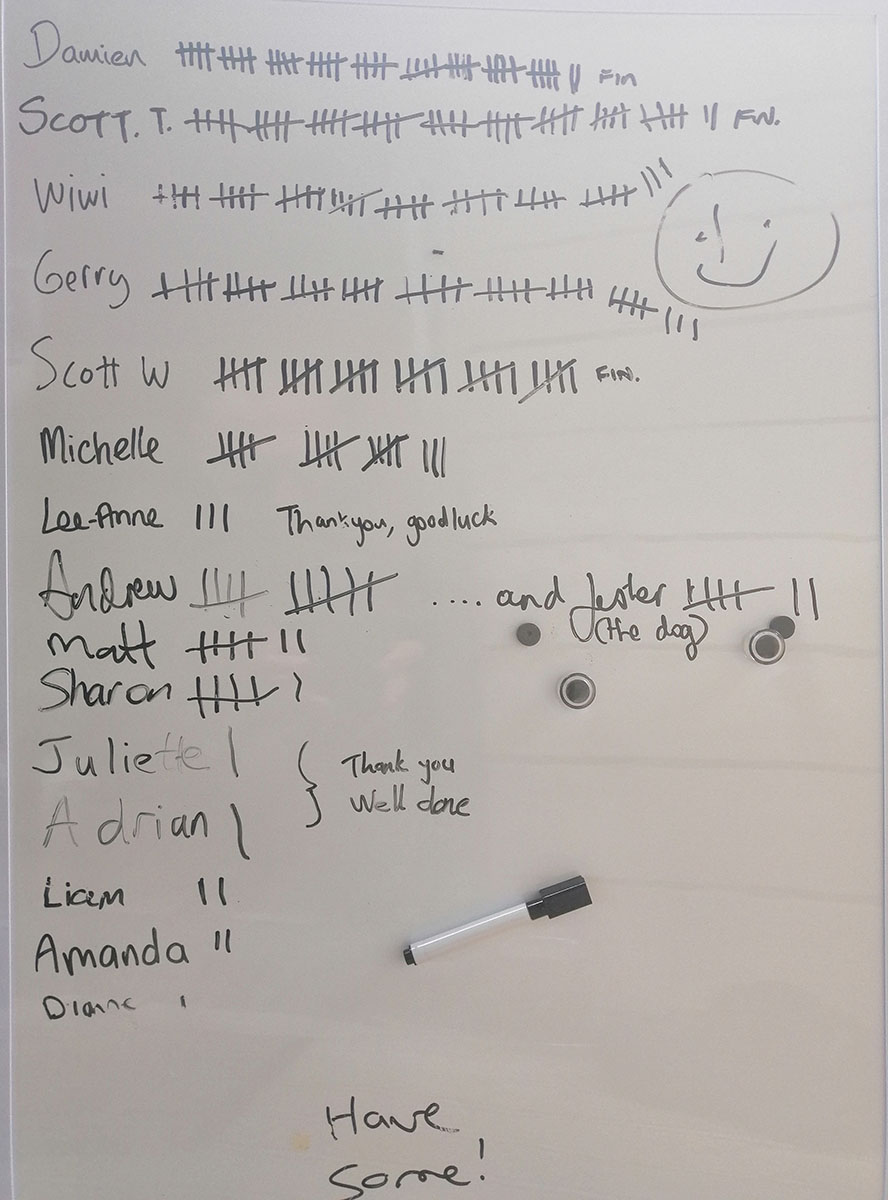 Damien 𝍸 𝍸 𝍸 𝍸 𝍸 𝍸 𝍸 𝍸 𝍸 || FIN
SCOTT. T. 𝍸 𝍸 𝍸 𝍸 𝍸 𝍸 𝍸 𝍸 𝍸 || FIN.
Wiwi 𝍸 𝍸 𝍸 𝍸 𝍸 𝍸 𝍸 𝍸 |||
Gerry 𝍸 𝍸 𝍸 𝍸 𝍸 𝍸 𝍸 𝍸 |||
Scott W 𝍸 𝍸 𝍸 𝍸 𝍸 𝍸 FIN.
Michelle 𝍸 𝍸 𝍸 |||
Lee-Anne ||| Thankyou, goodluck
Andrew 𝍸 𝍸 .... and Jester 𝍸 ||
(the dog)
Matt 𝍸 ||
Sharon 𝍸 |
Juliette | } Thank you
Adrian | Well done
Liam ||
Amanda ||
Dianne |
Have
Some!